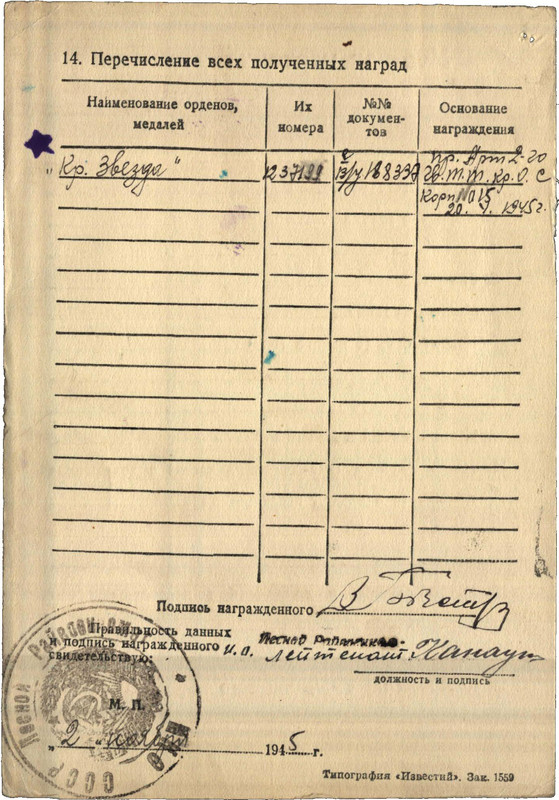 14. Перечисление всех полученных наград
Наименование орденов, медалей
Их номера
№№ документов
Основание награждения
„Кр. Звезда“
1237199
в/у 168337
пр. Арт 2-го
гв. т. т. Кр. О. С
Корп № 015
20. 1945 г.
Подпись награжденного
Правильность данных
и подпись награжденного
свидетельствую:
и. о.
лейтенант
должность и подпись
М. П.
„2“
1945 г.
СССР
Типография «Известий». Зак. 1559